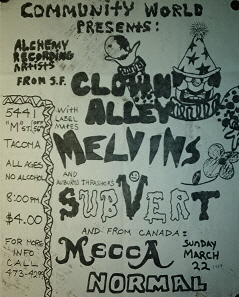 COMMUNITY WORLD
PRESENTS:
ALCHEMY
RECORDING
ARTISTS
FROM S.F.
CLOWN
ALLEY
WITH
LABEL
MATES
MELVINS
AND
AUBURN'S THRASHERS
SUBVERT
AND FROM CANADA:
MECCA
NORMAL
SUNDAY
MARCH
22
5441
"M" ST.
TACOMA
ALL AGES
NO ALCOHOL
8:00PM
$4.00
FOR MORE
INFO
CALL